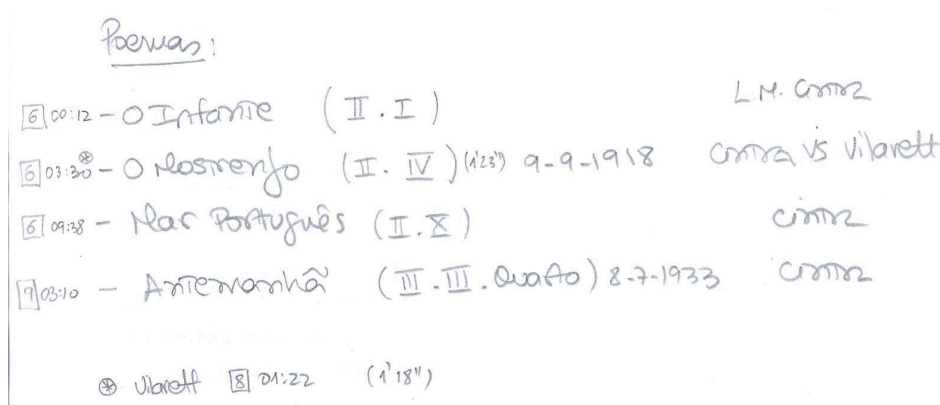 Poemas:
L.M. Cintra
6 00:12 - O Infante (II.I)
6 03:30 ⊛ - O Mostrenfo (II.IV) (1'23") 9-9-1918 Cintra vs Vilarett
6 09:38 - Mar Português (II.X) Cintra
9 03:10 - Antemanhã (III.III.Quarto) 8-7-1933 Cintra
⊛ Vilarett 8 01:22 (1'18")